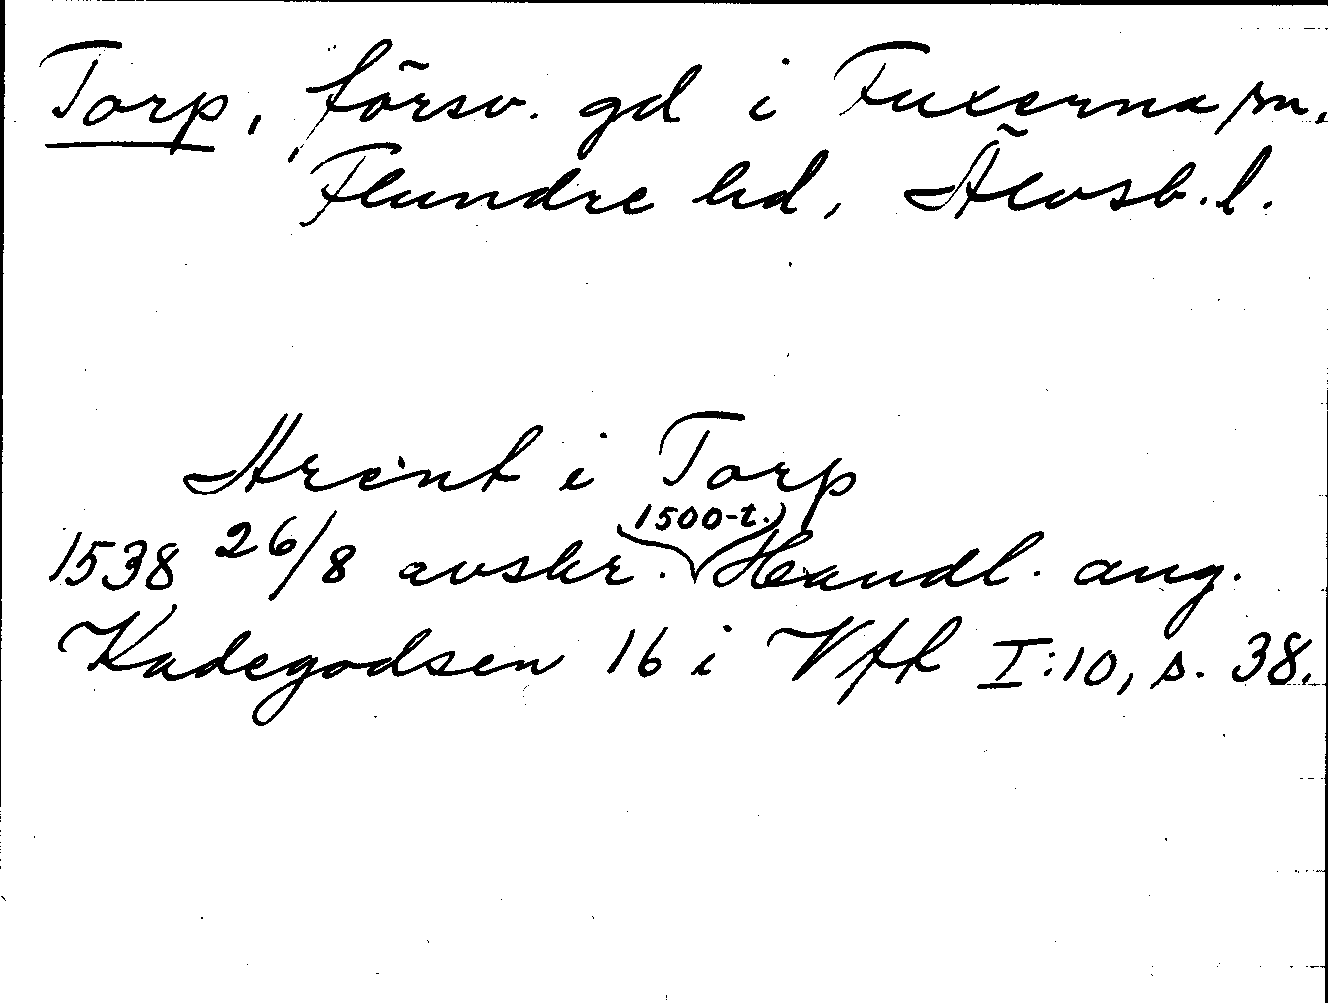 Torp, försv. gd i Fuxerna sn,
Flundre hd, Älvsb. l.
Arent i Torp
1538 26/8 avskr. (1500-t.) Handl. ang.
Kadegodsen 16 i Vfh I:10, s. 38.